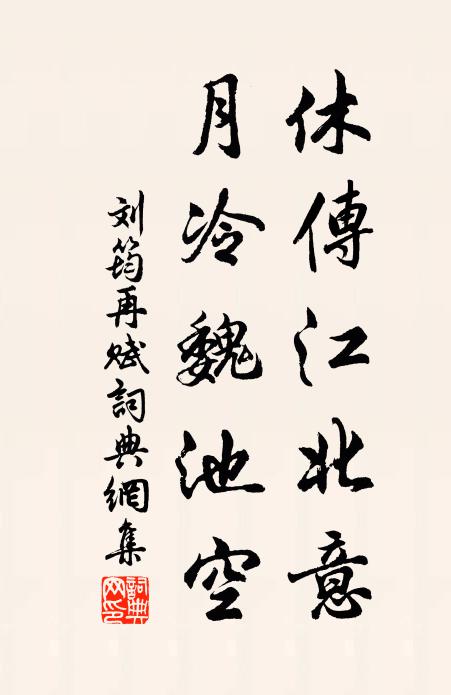 休傳江北意
月冷魏池空
刘筠再赋詞典網集
詞典網印